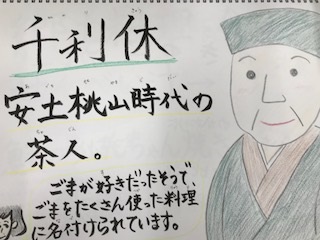 千利休
安土桃山時代の
茶人。
ごまが好きだったそうで、
ごまをたくさん使った料理
に名付けられています。